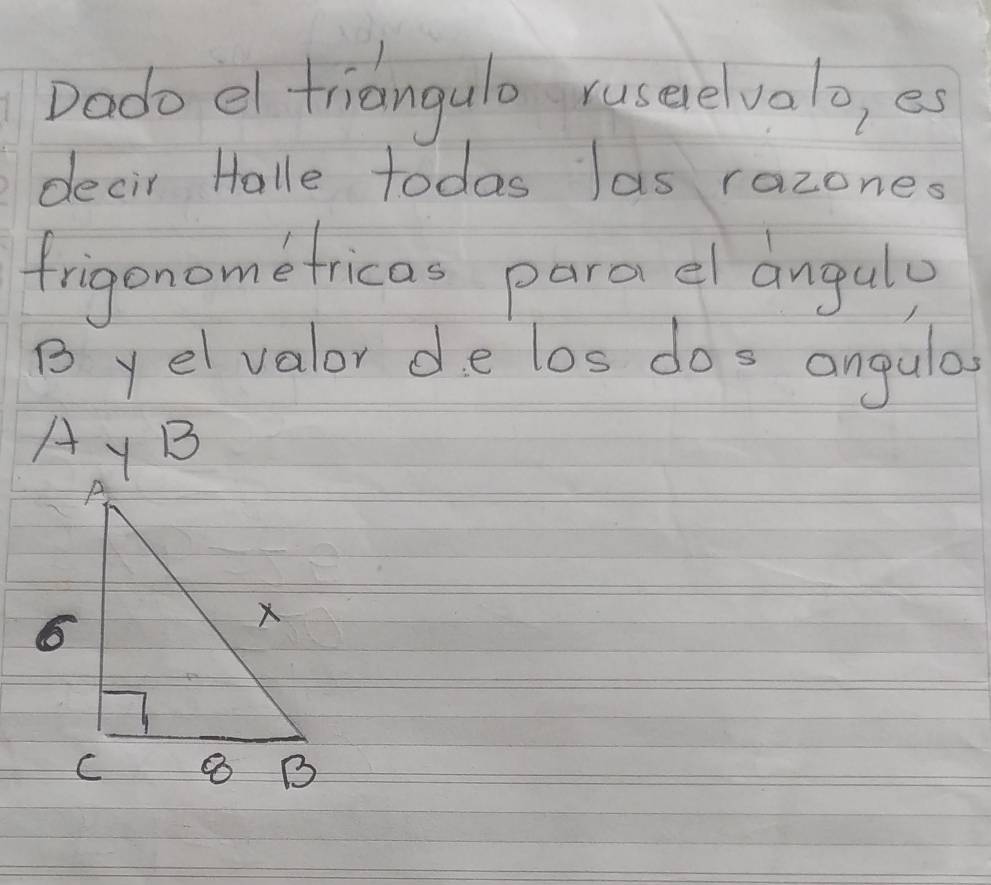 Dado el triángulo rusuelvalo, es
decir Halle todas las razones
trigonométricas para el ángulo
B y el valor de los dos ángulos
A y B
A
6
x
C 8 B